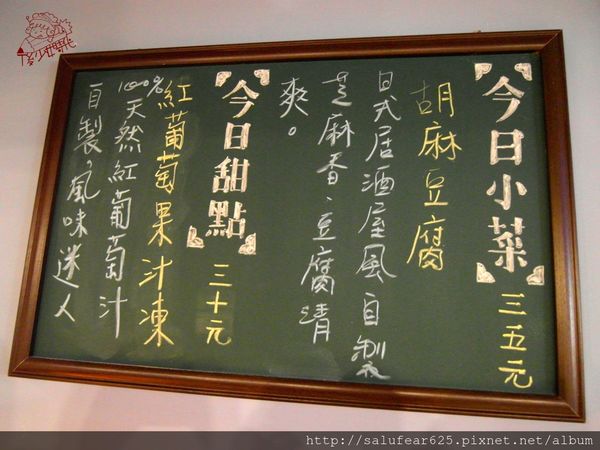 今日小菜 三五元
胡麻豆腐
日式居酒屋風自製
芝麻香、豆腐清
爽。
今日甜點 三十元
紅葡萄果汁凍
100%天然紅葡萄汁
自製，風味迷人
http://salufear625.pixnet.net/album